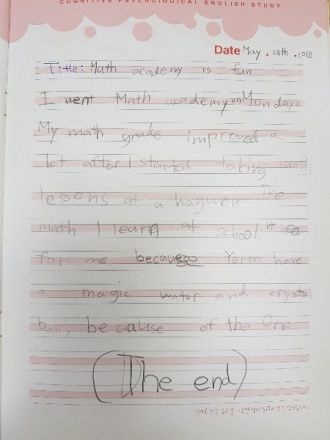 COGNITIVE PSYCHOLOGICAL ENGLISH STUDY
Date May. 28th. 2018
Title: Math academy is fun
I went Math academy on Mondays
My math grade improved a
lot after I started taking
lessons at a hagwon The
math I learn at school is
for me because Yerm have
a magic water and crystal
ball, be cause of the One
(The end)